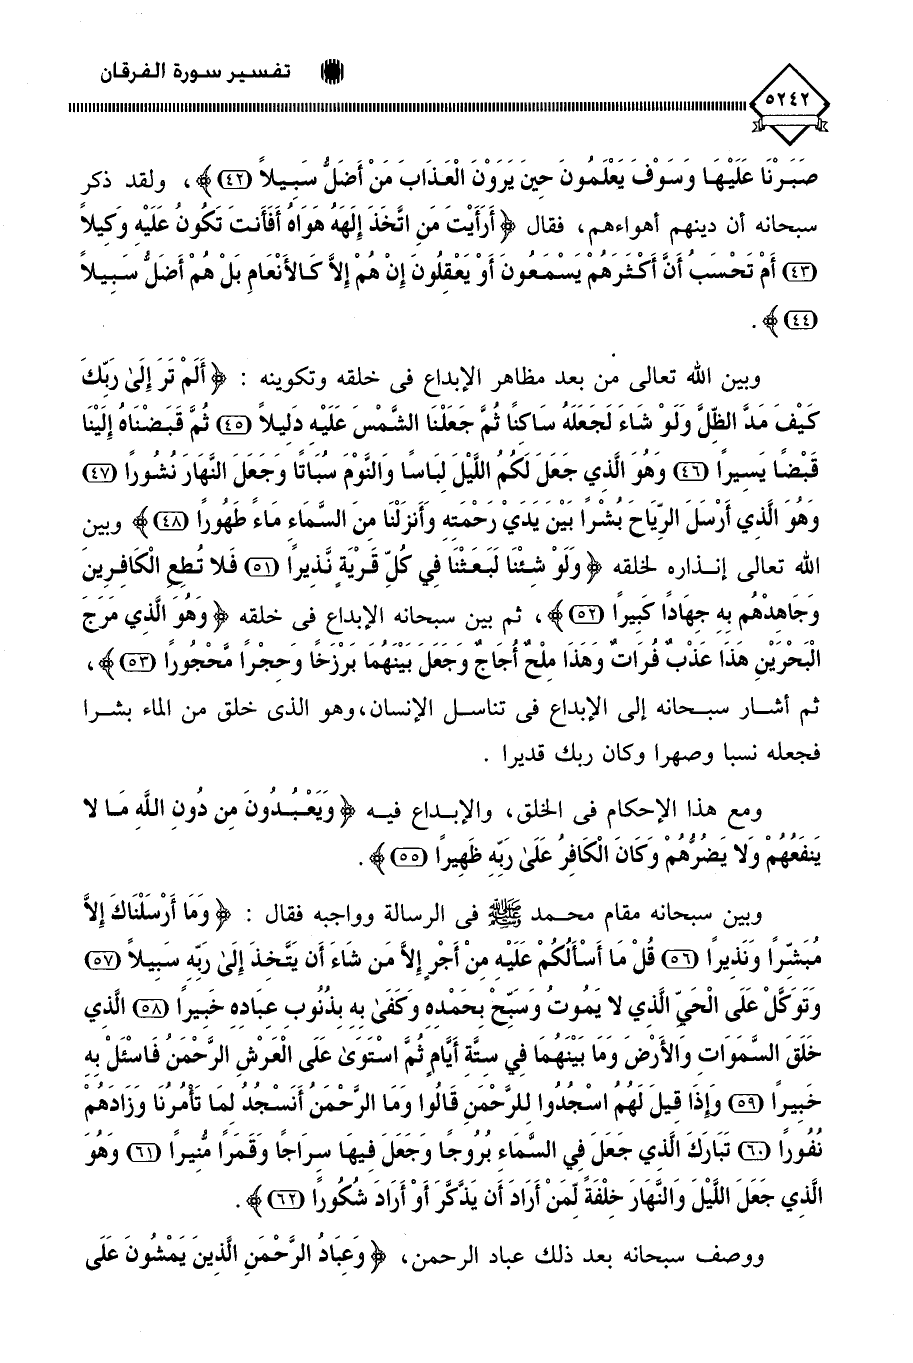 تفسير سورة الفرقان
٥٢٤٢
صَبَرْنَا عَلَيْهَا وَسَوْفَ يَعْلَمُونَ حِينَ يَرَوْنَ الْعَذَابَ مَنْ أَضَلُّ سَبِيلاً (٤٢)﴾، ولقد ذكر
سبحانه أن دينهم أهواءهم، فقال ﴿أَرَأَيْتَ مَنِ اتَّخَذَ إِلَهَهُ هَوَاهُ أَفَأَنتَ تَكُونُ عَلَيْهِ وَكِيلاً
(٤٣) أَمْ تَحْسَبُ أَنَّ أَكْثَرَهُمْ يَسْمَعُونَ أَوْ يَعْقِلُونَ إِنْ هُمْ إِلاَّ كَالأَنْعَامِ بَلْ هُمْ أَضَلُّ سَبِيلاً
(٤٤)﴾.
وبين الله تعالى من بعد مظاهر الإبداع فى خلقه وتكوينه : ﴿أَلَمْ تَرَ إِلَىٰ رَبِّكَ
كَيْفَ مَدَّ الظِّلَّ وَلَوْ شَاءَ لَجَعَلَهُ سَاكِنًا ثُمَّ جَعَلْنَا الشَّمْسَ عَلَيْهِ دَلِيلاً (٤٥) ثُمَّ قَبَضْنَاهُ إِلَيْنَا
قَبْضًا يَسِيرًا (٤٦) وَهُوَ الَّذِي جَعَلَ لَكُمُ اللَّيْلَ لِبَاسًا وَالنَّوْمَ سُبَاتًا وَجَعَلَ النَّهَارَ نُشُورًا (٤٧)
وَهُوَ الَّذِي أَرْسَلَ الرِّيَاحَ بُشْرًا بَيْنَ يَدَيْ رَحْمَتِهِ وَأَنزَلْنَا مِنَ السَّمَاءِ مَاءً طَهُورًا (٤٨)﴾ وبين
الله تعالى إنذاره لخلقه ﴿وَلَوْ شِئْنَا لَبَعَثْنَا فِي كُلِّ قَرْيَةٍ نَّذِيرًا (٥١) فَلا تُطِعِ الْكَافِرِينَ
وَجَاهِدْهُم بِهِ جِهَادًا كَبِيرًا (٥٢)﴾، ثم بين سبحانه الإبداع فى خلقه ﴿وَهُوَ الَّذِي مَرَجَ
الْبَحْرَيْنِ هَذَا عَذْبٌ فُرَاتٌ وَهَذَا مِلْحٌ أُجَاجٌ وَجَعَلَ بَيْنَهُمَا بَرْزَخًا وَحِجْرًا مَّحْجُورًا (٥٣)﴾،
ثم أشار سبحانه إلى الإبداع فى تناسل الإنسان،وهو الذى خلق من الماء بشرا
فجعله نسبا وصهرا وكان ربك قديرا .
ومع هذا الإحكام فى الخلق، والإبداع فيه ﴿وَيَعْبُدُونَ مِن دُونِ اللَّهِ مَا لا
يَنفَعُهُمْ وَلا يَضُرُّهُمْ وَكَانَ الْكَافِرُ عَلَىٰ رَبِّهِ ظَهِيرًا (٥٥)﴾.
وبين سبحانه مقام محمد ﷺ فى الرسالة وواجبه فقال : ﴿وَمَا أَرْسَلْنَاكَ إِلاَّ
مُبَشِّرًا وَنَذِيرًا (٥٦) قُلْ مَا أَسْأَلُكُمْ عَلَيْهِ مِنْ أَجْرٍ إِلاَّ مَن شَاءَ أَن يَتَّخِذَ إِلَىٰ رَبِّهِ سَبِيلاً (٥٧)
وَتَوَكَّلْ عَلَى الْحَيِّ الَّذِي لا يَمُوتُ وَسَبِّحْ بِحَمْدِهِ وَكَفَىٰ بِهِ بِذُنُوبِ عِبَادِهِ خَبِيرًا (٥٨) الَّذِي
خَلَقَ السَّمَوَاتِ وَالأَرْضَ وَمَا بَيْنَهُمَا فِي سِتَّةِ أَيَّامٍ ثُمَّ اسْتَوَىٰ عَلَى الْعَرْشِ الرَّحْمَنُ فَاسْئَلْ بِهِ
خَبِيرًا (٥٩) وَإِذَا قِيلَ لَهُمُ اسْجُدُوا لِلرَّحْمَنِ قَالُوا وَمَا الرَّحْمَنُ أَنَسْجُدُ لِمَا تَأْمُرُنَا وَزَادَهُمْ
نُفُورًا (٦٠) تَبَارَكَ الَّذِي جَعَلَ فِي السَّمَاءِ بُرُوجًا وَجَعَلَ فِيهَا سِرَاجًا وَقَمَرًا مُّنِيرًا (٦١) وَهُوَ
الَّذِي جَعَلَ اللَّيْلَ وَالنَّهَارَ خِلْفَةً لِّمَنْ أَرَادَ أَن يَذَّكَّرَ أَوْ أَرَادَ شُكُورًا (٦٢)﴾.
ووصف سبحانه بعد ذلك عباد الرحمن، ﴿وَعِبَادُ الرَّحْمَنِ الَّذِينَ يَمْشُونَ عَلَى